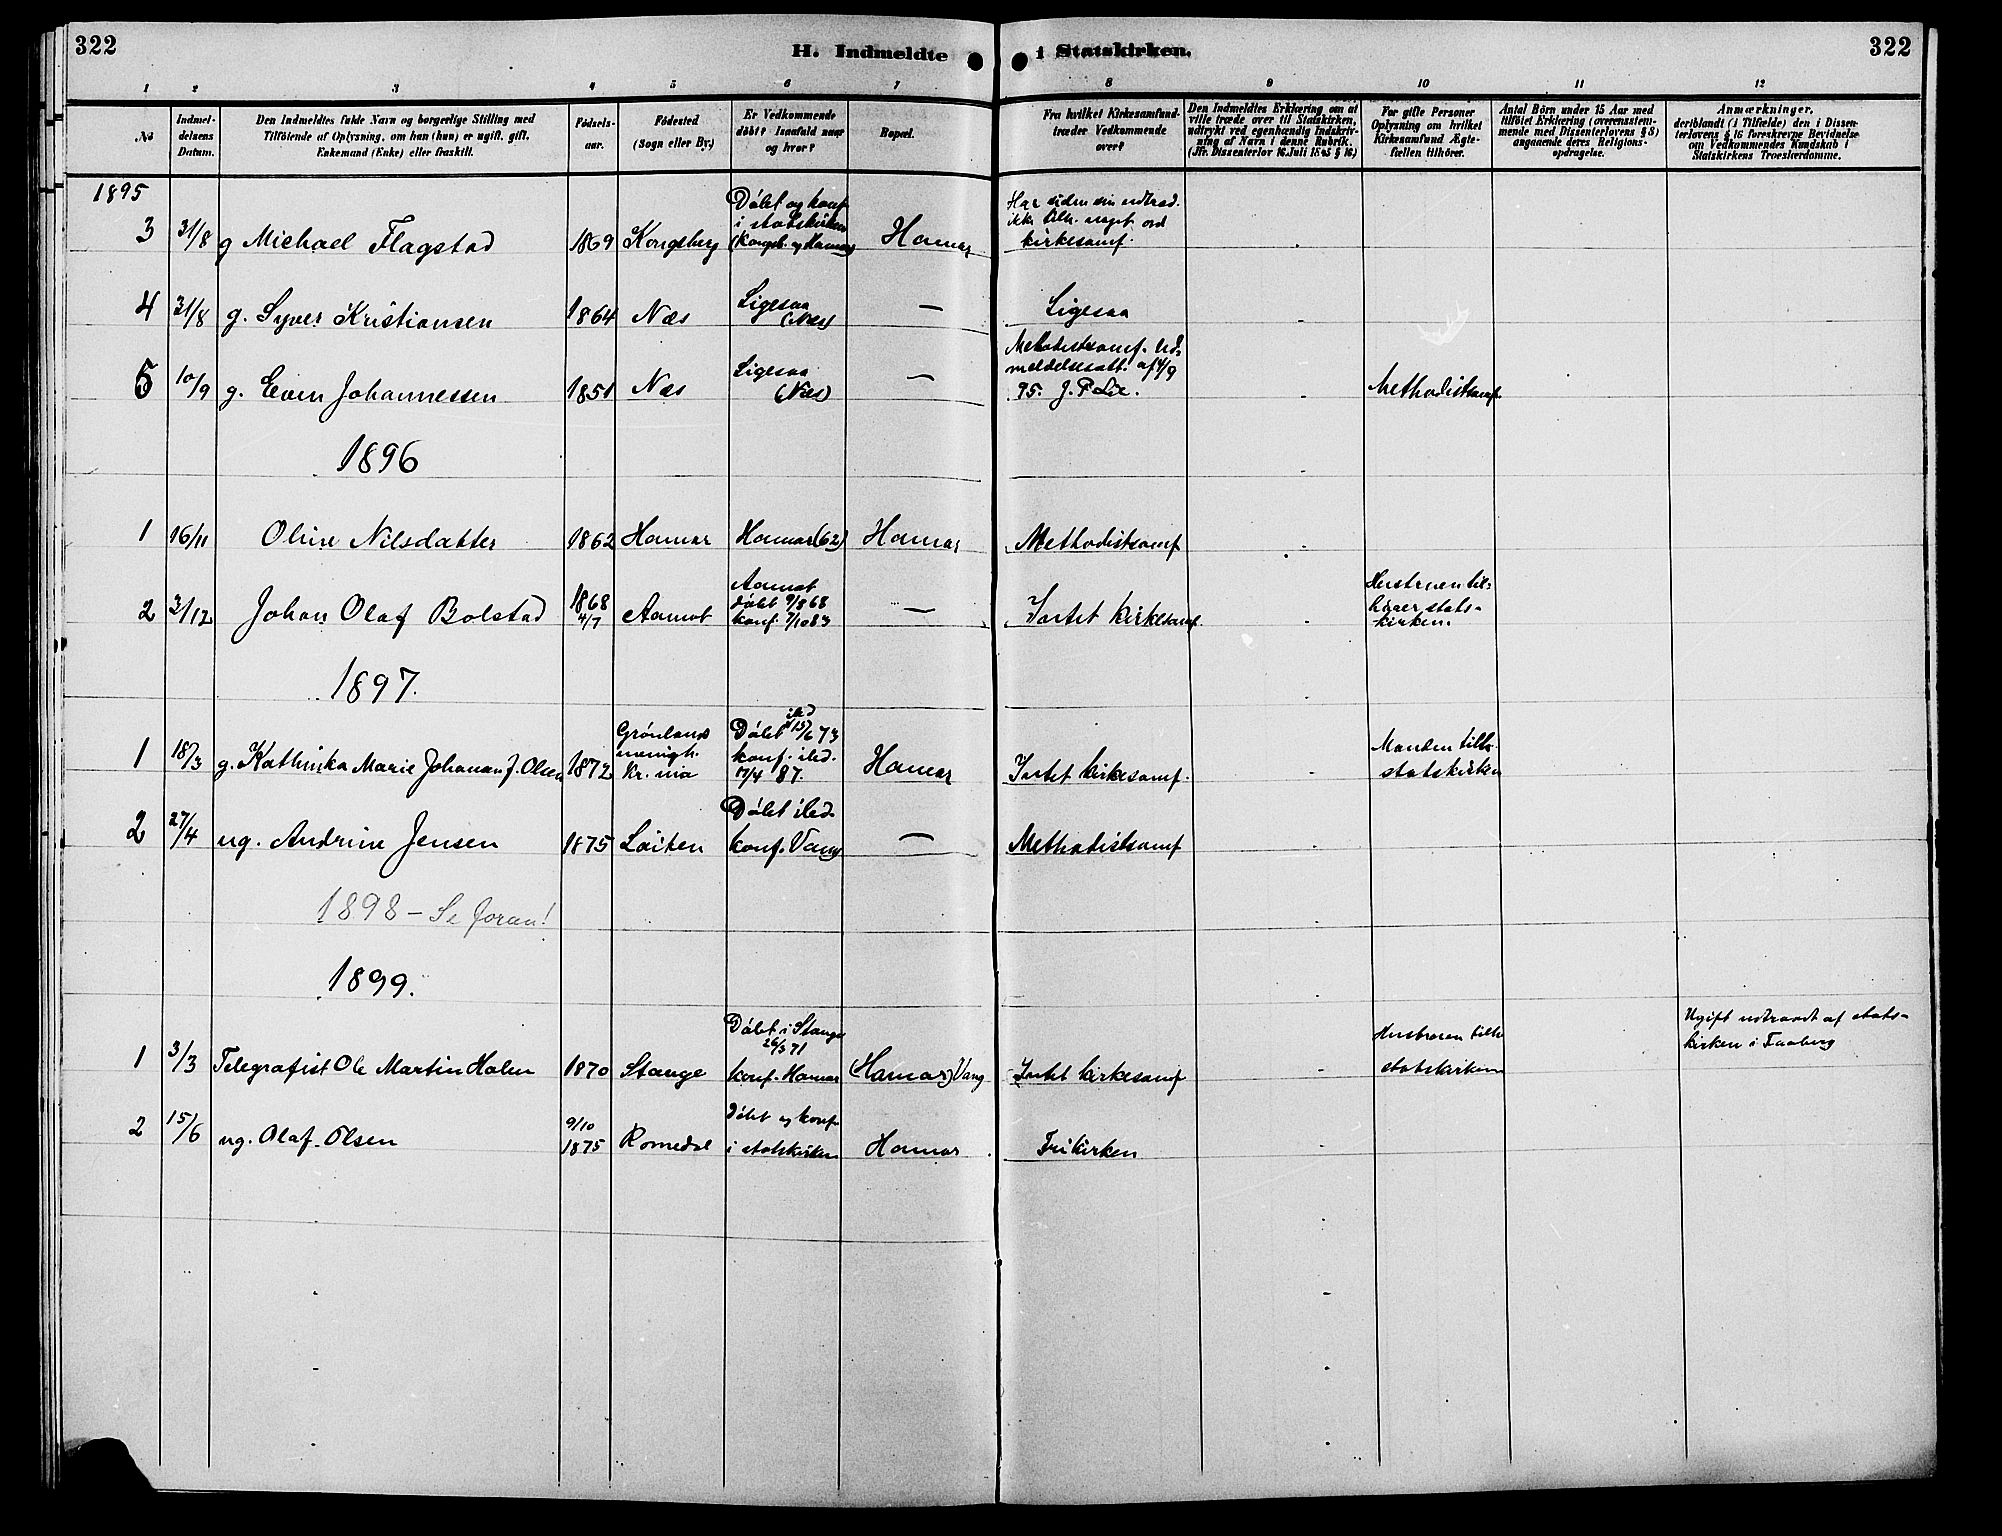 322
H. Indmeldte i Statskirken.
322
1 2 3 4 5 6 7 8 9 10 11 12
No
Indmel-
delsens
Datum.
Den Indmeldtes fulde Navn og borgerlige Stilling med
Tilföiende af Oplysning, om han (hun) er ugift, gift,
Enkemand (Enke) eller fraskilt.
Födsels-
aar.
Födested
(Sogn eller By.)
Er Vedkommende
döbt? Isaafald naar
og hvor?
Bopæl.
Fra hvilket Kirkesamfund
træder Vedkommende
over?
Den Indmeldtes Erklæring om at
ville træde over til Statskirken,
udtrykt ved egenhændig Indskriv-
ning af Navn i denne Rubrik.
(Jfr. Dissenterlov 16. Juli 1845 § 16.)
For gifte Personer
Oplysning om hvilket
Kirkesamfund Ægte-
fællen tilhörer.
Antal Börn under 15 Aar med
tilföiet Erklæring (overensstem-
mende med Dissenterlovens § 8)
angaaende deres Religions-
opdragelse.
Anmærkninger,
deriblandt (i Tilfælde) den i Dissen-
terlovens § 16 foreskrevne Bevidnelse
om Vedkommendes Kundskab i
Statskirkens Troeslærdomme.
1895
3 31/8 g Michael Flagstad 1869 Kongsberg
Döbt og konf
i statskirken
(Kongsb. og Hamar)
Hamar
Har siden sin udtræd.
ikke tilh. noget ord
kirkesamf.
4 31/8 g. Syver Kristiansen 1864 Næs
Ligesaa
(Næs)
—
Ligesaa
5 10/9 g. Even Johannessen 1851 Næs
Ligesaa
(Næs)
—
Methodistsamf. Ud-
meldelsesatt. af 4/9
95. J. P. Lie.
Methodistsamf.
1896
1 16/11 Oline Nilsdatter 1862 Hamar Hamar (62) Hamar Methodistsamf
2 3/12 Johan Olaf Bolstad
1868
4/7
Aamot
Aamot
döbt 9/8 68
konf. 7/10 83
—
Intet kirkesamf.
Hustruen til-
hörer stats-
kirken.
1897.
1 18/3 g. Kathinka Marie Johanna f. Olsen 1872
Grönlands
menigh.
Kr.nia
Döbt ibid 15/6 73
konf. ibd.
17/4 87.
Hamar
Intet kirkesamf.
Manden tilh.
statskirken
2 27/4 ug. Andrine Jensen 1875 Löiten
Döbt ibd.
konf. Vang
—
Methodistsamf
1898 – Se foran!
1899.
1 3/3 Telegrafist Ole Martin Holen 1870 Stange
Döbt i Stange
26/3 71
konf. Hamar
(Hamar) Vang
Intet kirkesamf
Hustruen tilh
statskirken
Ugift udtraadt af stats-
kirken i Faaberg
2 15/6 ug. Olaf Olsen
9/10
1875
Romedal
Döbt og konf.
i statskirken
Hamar
Frikirken